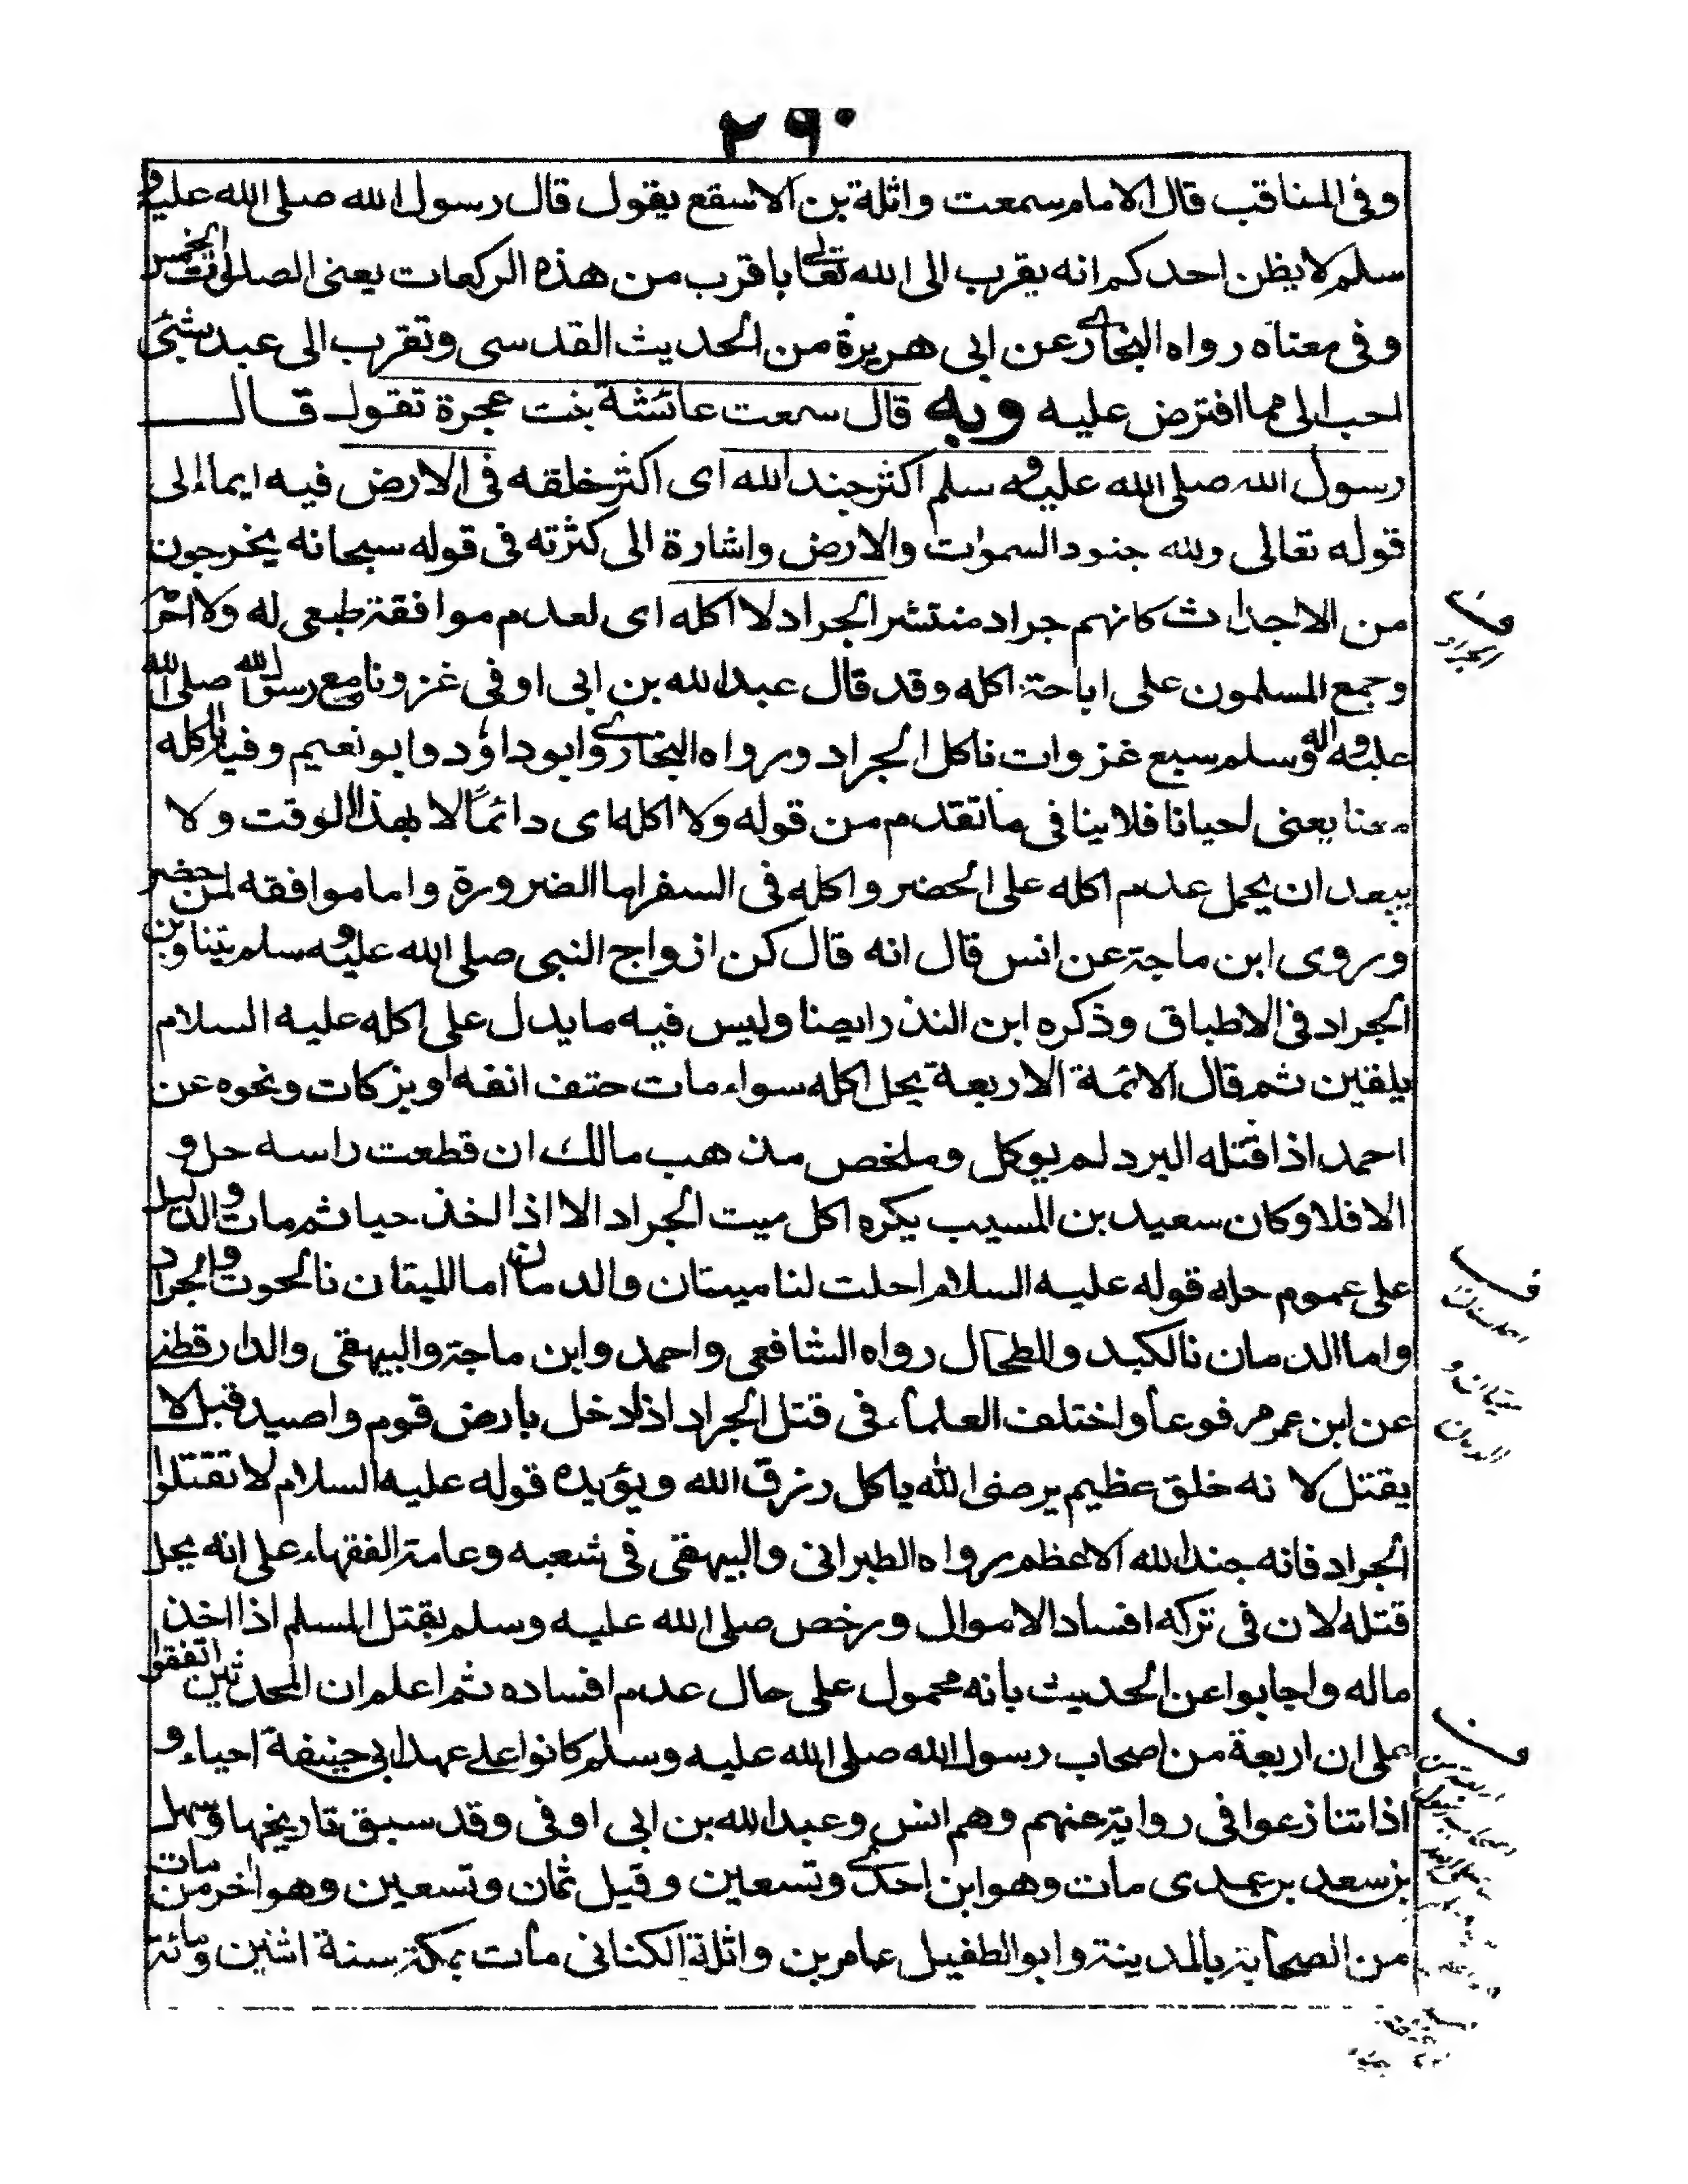 ٢٩٠
وفى المناقب قال الامام سمعت واثلة بن الاسقع يقول قال رسول الله صلى الله عليه و
سلم لا يظن احدكم انه يقرب الى الله تعالى باقرب من هذه الركعات يعنى الصلوات الخمس
وفى معناه رواه البخارى عن ابى هريرة من الحديث القدسى وتقرب الى عبد بشئ
احب الى مما افترض عليه وبه قال سمعت عائشة بنت عجرة تقول قال
رسول الله صلى الله عليه و سلم اكثر جند الله اى اكثر خلقه فى الارض فيه ايماء الى
قوله تعالى ولله جنود السموات والارض واشارة الى كثرته فى قوله سبحانه يخرجون
من الاجداث كانهم جراد منتشر الجراد لا اكله اى لعدم موافقة طبعى له ولا احرم
وجمع المسلمون على اباحة اكله وقد قال عبد الله بن ابى اوفى غزونا مع رسول الله صلى الله
عليه و اله وسلم سبع غزوات ناكل الجراد ورواه البخارى وابو داؤد وابو نعيم وفيه ياكله
معنا يعنى احيانا فلا ينافى ما تقدم من قوله ولا اكله اى دائمًا لا بهذا الوقت ولا
يبعد ان يحمل عدم اكله على الحضر واكله فى السفر اما الضرورة واما موافقه لمن حضر
وروى ابن ماجة عن انس قال انه قال كن ازواج النبى صلى الله عليه و سلم يتناوبن
الجراد فى الاطباق وذكره ابن النذر ايضا وليس فيه ما يدل على اكله عليه السلام
يلقين ثم قال الائمة الاربعة يحل اكله سواء مات حتف انفه او بزكات ونحوه عن
احمد اذا قتله البرد لم يوكل وملخص مذهب مالك ان قطعت راسه حل و
الا فلا وكان سعيد بن المسيب يكره اكل ميت الجراد الا اذا اخذ حيا ثم مات و الدليل
على عموم حله قوله عليه السلام احلت لنا ميتتان والدمان اما الميتان نالحوت و الجراد
واما الدمان نالكبد والطحال رواه الشافعى واحمد وابن ماجة والبيهقى والدارقطنى
عن ابن عمر مرفوعا واختلف العلماء فى قتل الجراد اذا دخل بارض قوم واصيد قيل لا
يقتل لانه خلق عظيم يرضى الله ياكل رزق الله ويؤيده قوله عليه السلام لا تقتلوا
الجراد فانه جند الله الاعظم رواه الطبرانى والبيهقى فى شعبه وعامة الفقهاء على انه يحل
قتله لان فى تركه افساد الاموال ورخص صلى الله عليه وسلم بقتل المسلم اذا اخذ
ماله واجابوا عن الحديث بانه محمول على حال عدم افساده ثم اعلم ان المحدثين اتفقوا
على ان اربعة من اصحاب رسول الله صلى الله عليه وسلم كانوا على عهد ابى حنيفة احياء و
اذا تنازعوا فى رواية عنهم وهم انس وعبد الله بن ابى اوفى وقد سبق تاريخها و سهل
بن سعد بر عدى مات وهو ابن احدى وتسعين وقيل ثمان وتسعين وهو اخر من مات
من الصحابة بالمدينة وابو الطفيل عامر بن واثلة الكنانى مات بمكة سنة اثنين ومائة
ف
الجراد
ف
ف